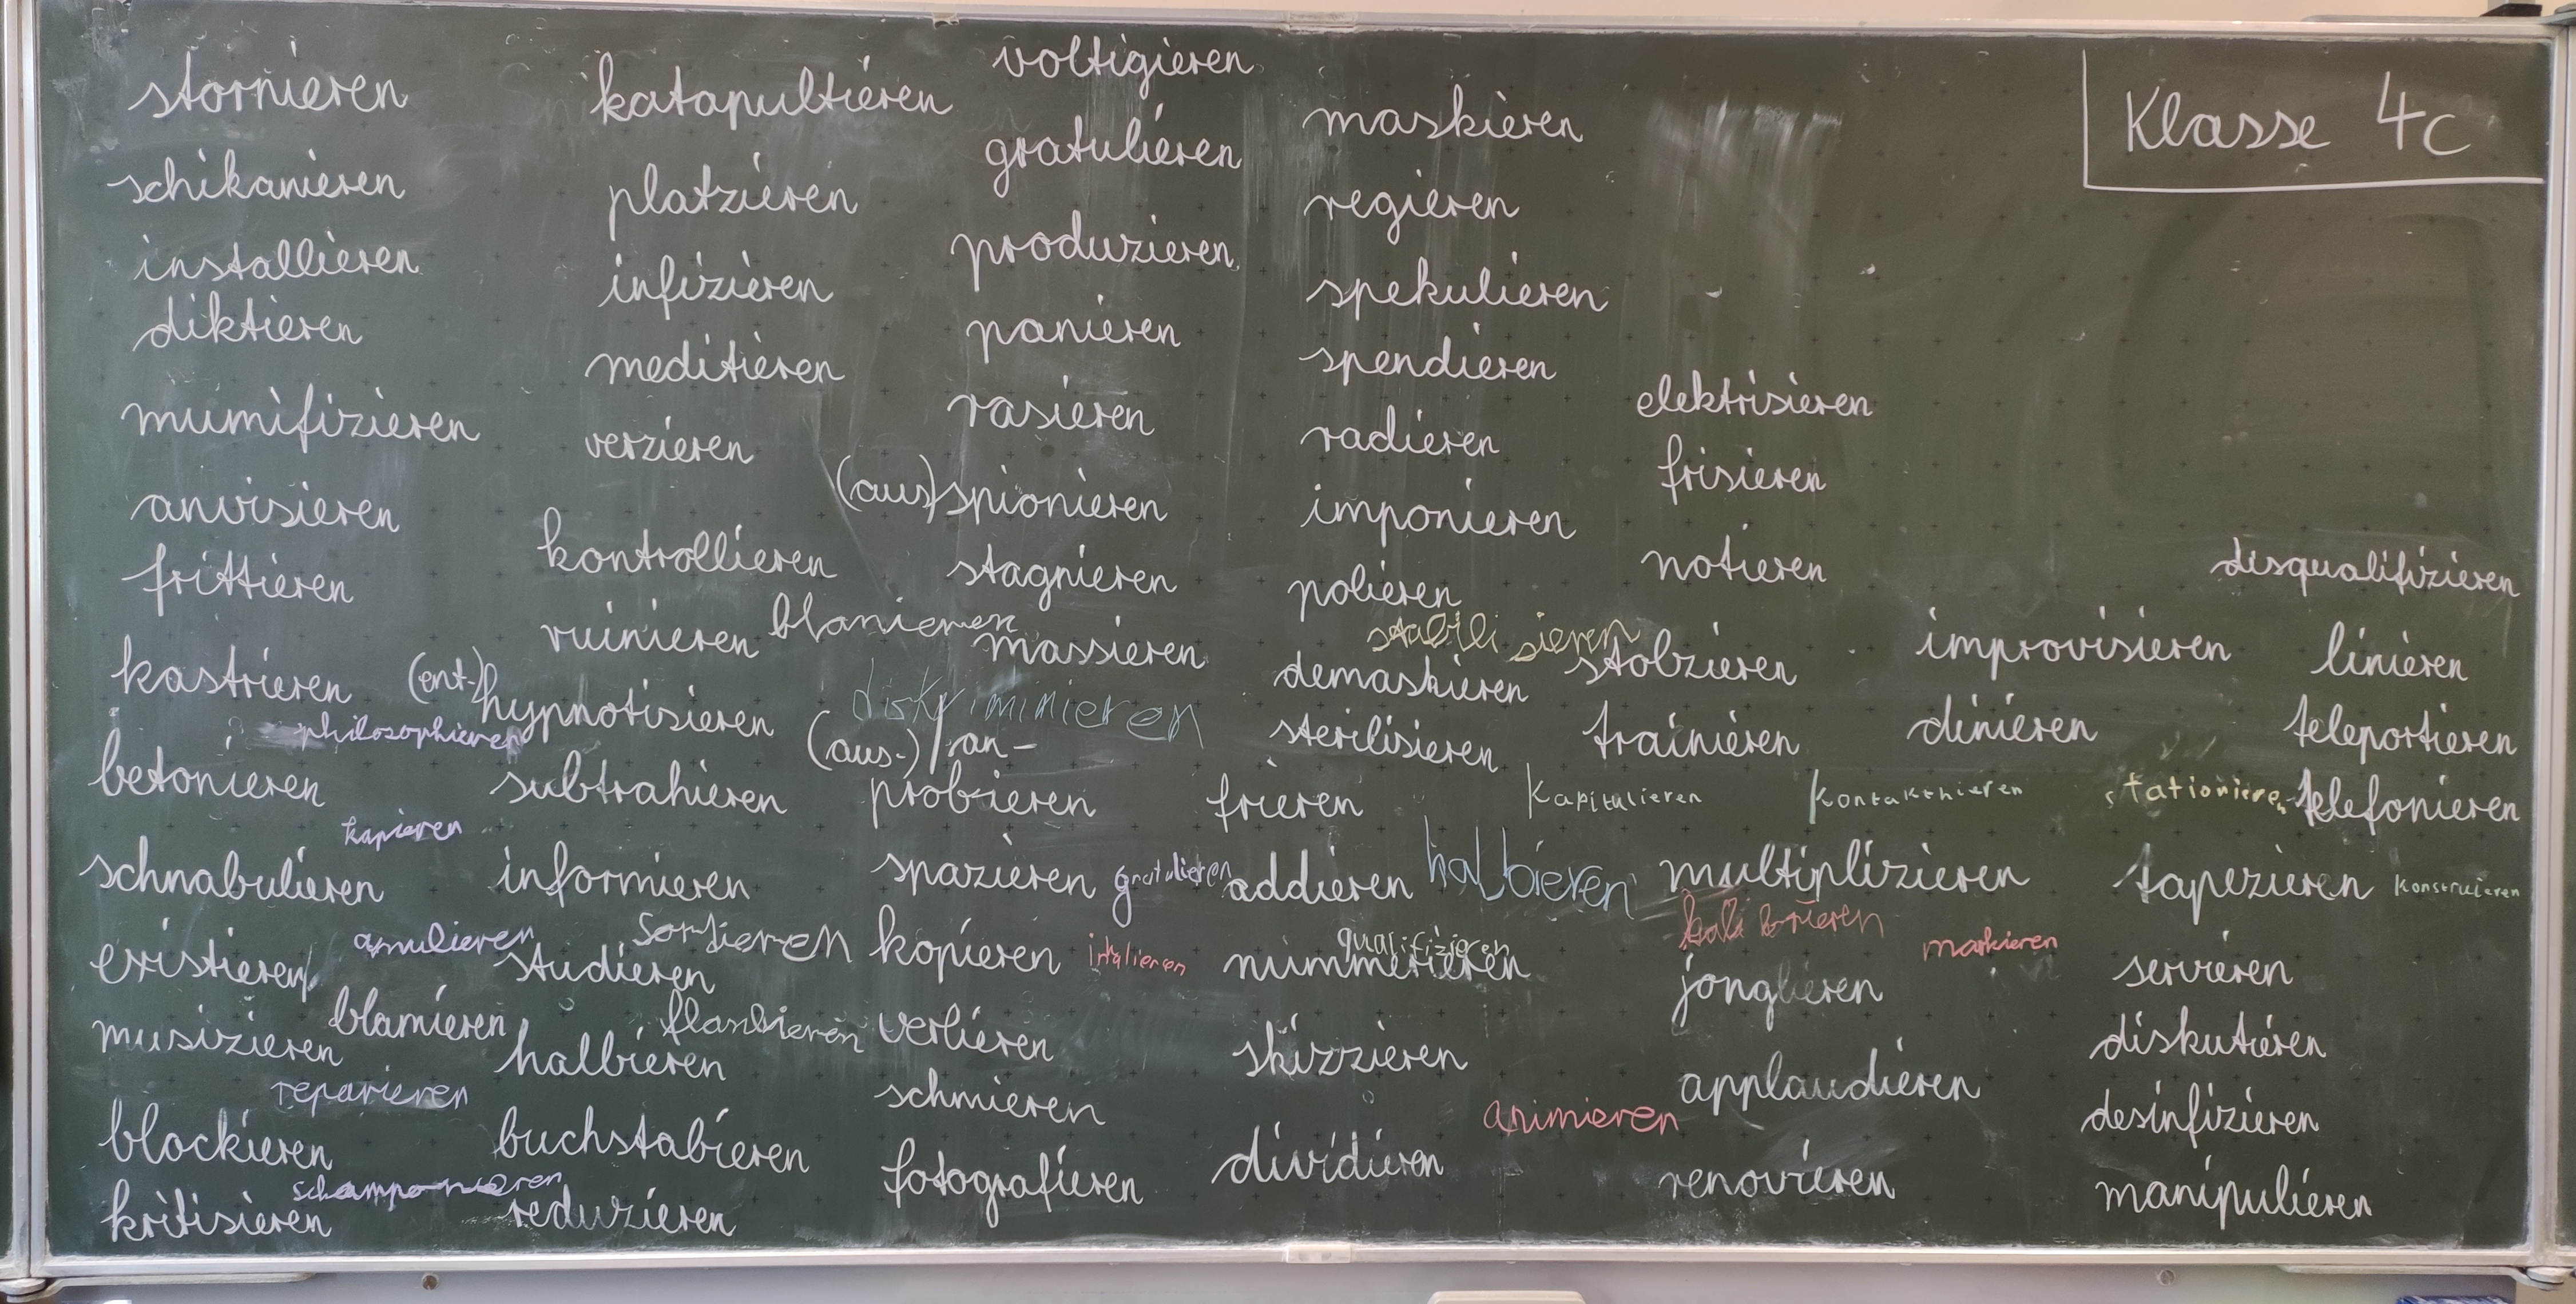 Klasse 4c
stornieren
schikanieren
installieren
diktieren
mumifizieren
anvisieren
frittieren
kastrieren
philosophieren
betonieren
kapieren
schnabulieren
existieren
blamieren
musizieren
reparieren
blockieren
schamponieren
kritisieren
katapultieren
platzieren
infizieren
meditieren
verzieren
kontrollieren
ruinieren
blamieren
(ent-)hypnotisieren
subtrahieren
informieren
sortieren
studieren
halbieren
buchstabieren
reduzieren
voltigieren
gratulieren
produzieren
panieren
rasieren
(aus)spionieren
stagnieren
massieren
diskriminieren
(aus-)/an-
probieren
spazieren
gratulieren
kopieren
verlieren
schmieren
fotografieren
maskieren
regieren
spekulieren
spendieren
radieren
imponieren
polieren
stabilisieren
demaskieren
sterilisieren
frieren
addieren
qualifizieren
nummerieren
skizzieren
dividieren
elektrisieren
frisieren
notieren
stolzieren
trainieren
Kapitulieren
halbieren
multiplizieren
markieren
jonglieren
animieren
applaudieren
renovieren
improvisieren
dinieren
kontakthieren
disqualifizieren
linieren
teleportieren
stationieren
telefonieren
tapezieren
Konstruieren
servieren
diskutieren
desinfizieren
manipulieren